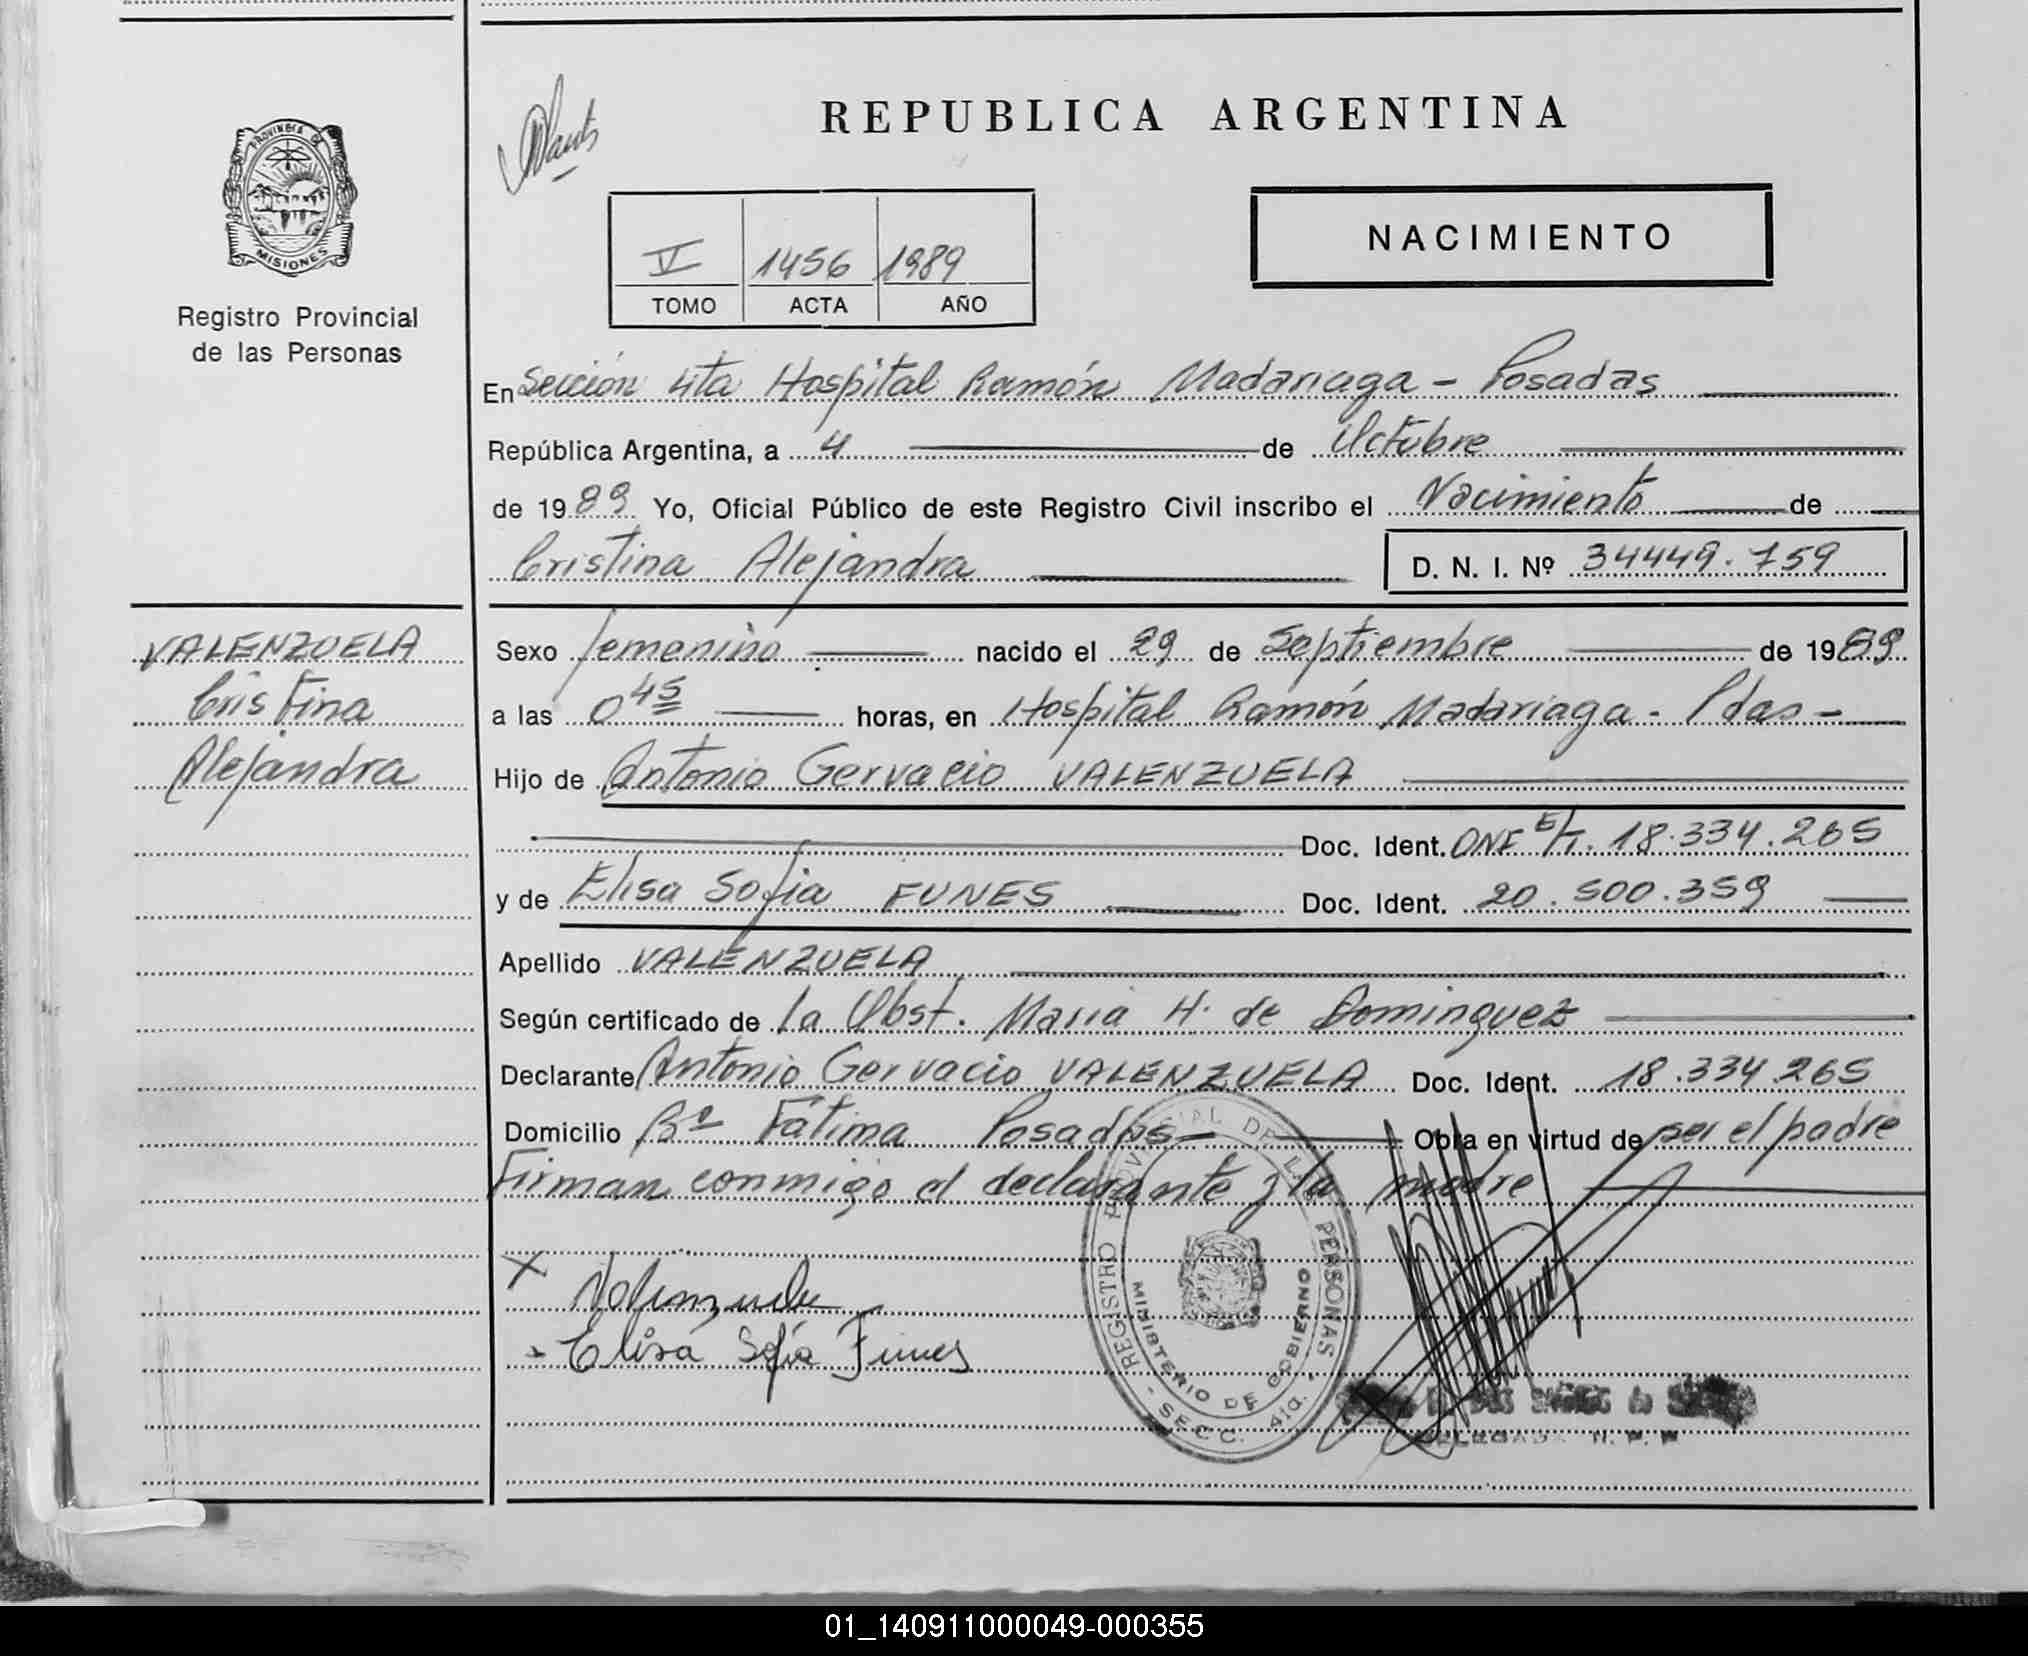 REPUBLICA ARGENTINA
PROVINCIA DE
MISIONES
Registro Provincial
de las Personas
V 1456 1989
TOMO ACTA AÑO
NACIMIENTO
En Sección 4ta Hospital Ramón Madariaga - Posadas
República Argentina, a 4 de Octubre
de 1989 Yo, Oficial Público de este Registro Civil inscribo el Nacimiento de
Cristina Alejandra D. N. I. Nº 34449.759
VALENZUELA
Cristina
Alejandra
Sexo femenino nacido el 29 de Septiembre de 1989
a las 0 45 horas, en Hospital Ramón Madariaga - Pdas -
Hijo de Antonio Gervacio VALENZUELA
Doc. Ident. DNI E/T. 18.334.265
y de Elisa Sofia FUNES Doc. Ident. 20.500.359
Apellido VALENZUELA
Según certificado de la Obst. Maria H. de Dominguez
Declarante Antonio Gervacio VALENZUELA Doc. Ident. 18.334.265
Domicilio Bº Fátima Posadas - Obra en virtud de ser el padre
Firman conmigo el declarante y la madre
x Valenzuela
Elisa Sofía Funes
REGISTRO PROVINCIAL DE LAS PERSONAS
MINISTERIO DE GOBIERNO
- SECC. 4ta. -
DELEGADA R. P. P.
01_140911000049-000355